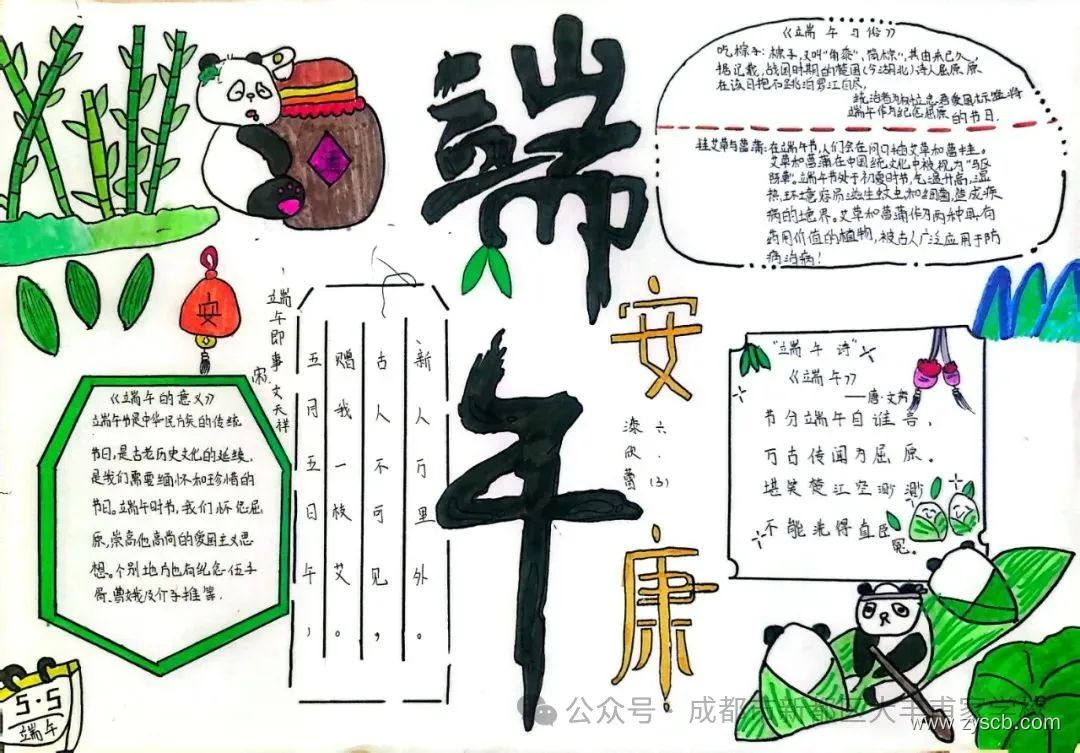 端午
安康
《端午习俗》
吃粽子：粽子，又叫“角黍”、“筒粽”，其由来已久，
据记载，战国时期的楚国(今湖北)诗人屈原
在该日抱石跳汨罗江自尽，
统治者为树立忠君爱国标 将
端午作为纪念屈原的节日.
挂艾草与菖蒲：在端午节，人们会在门口插艾草和菖蒲。
艾草和菖蒲在中国统文化中被视为“驱
端午节处于初夏时节，气温升高，湿
热，环境容易滋生蚊虫和细菌，造成疾
病的境界。艾草和菖蒲作为两种具有
药用价值的植物，被古人广泛应用于防
病治病！
安
端午即事
宋·文天祥
五月五日午，
赠我一枝艾。
古人不可见，
新人万里外。
《端午的意义》
端午节是中华民族的传统
节日，是古老历史文化的延续，
是我们需要缅怀和珍惜的
节日。端午时节，我们怀念屈
原，崇高他高尚的爱国主义思
想。个别地方也有纪念伍子
胥、曹娥及介子推等.
六.(3)
漆欣蕾
“端午诗”
《端午》
——唐·文秀
节分端午自谁言，
万古传闻为屈原。
堪笑楚江空渺渺，
不能洗得直臣冤。
5·5
端午
公众号·成都市新都区大丰
www.zyscb.com